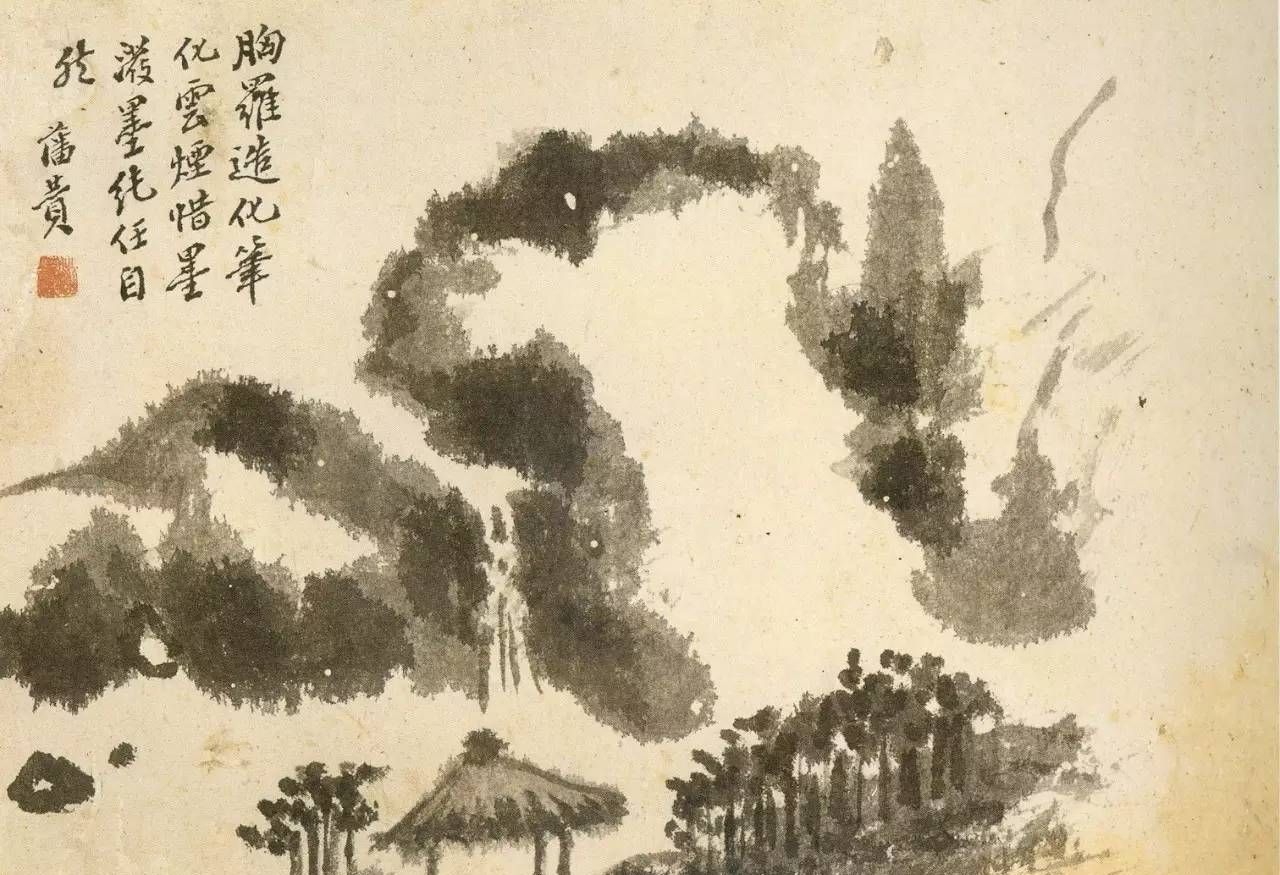 胸羅造化筆
化雲煙惜墨
潑墨純任自
然
藩貴